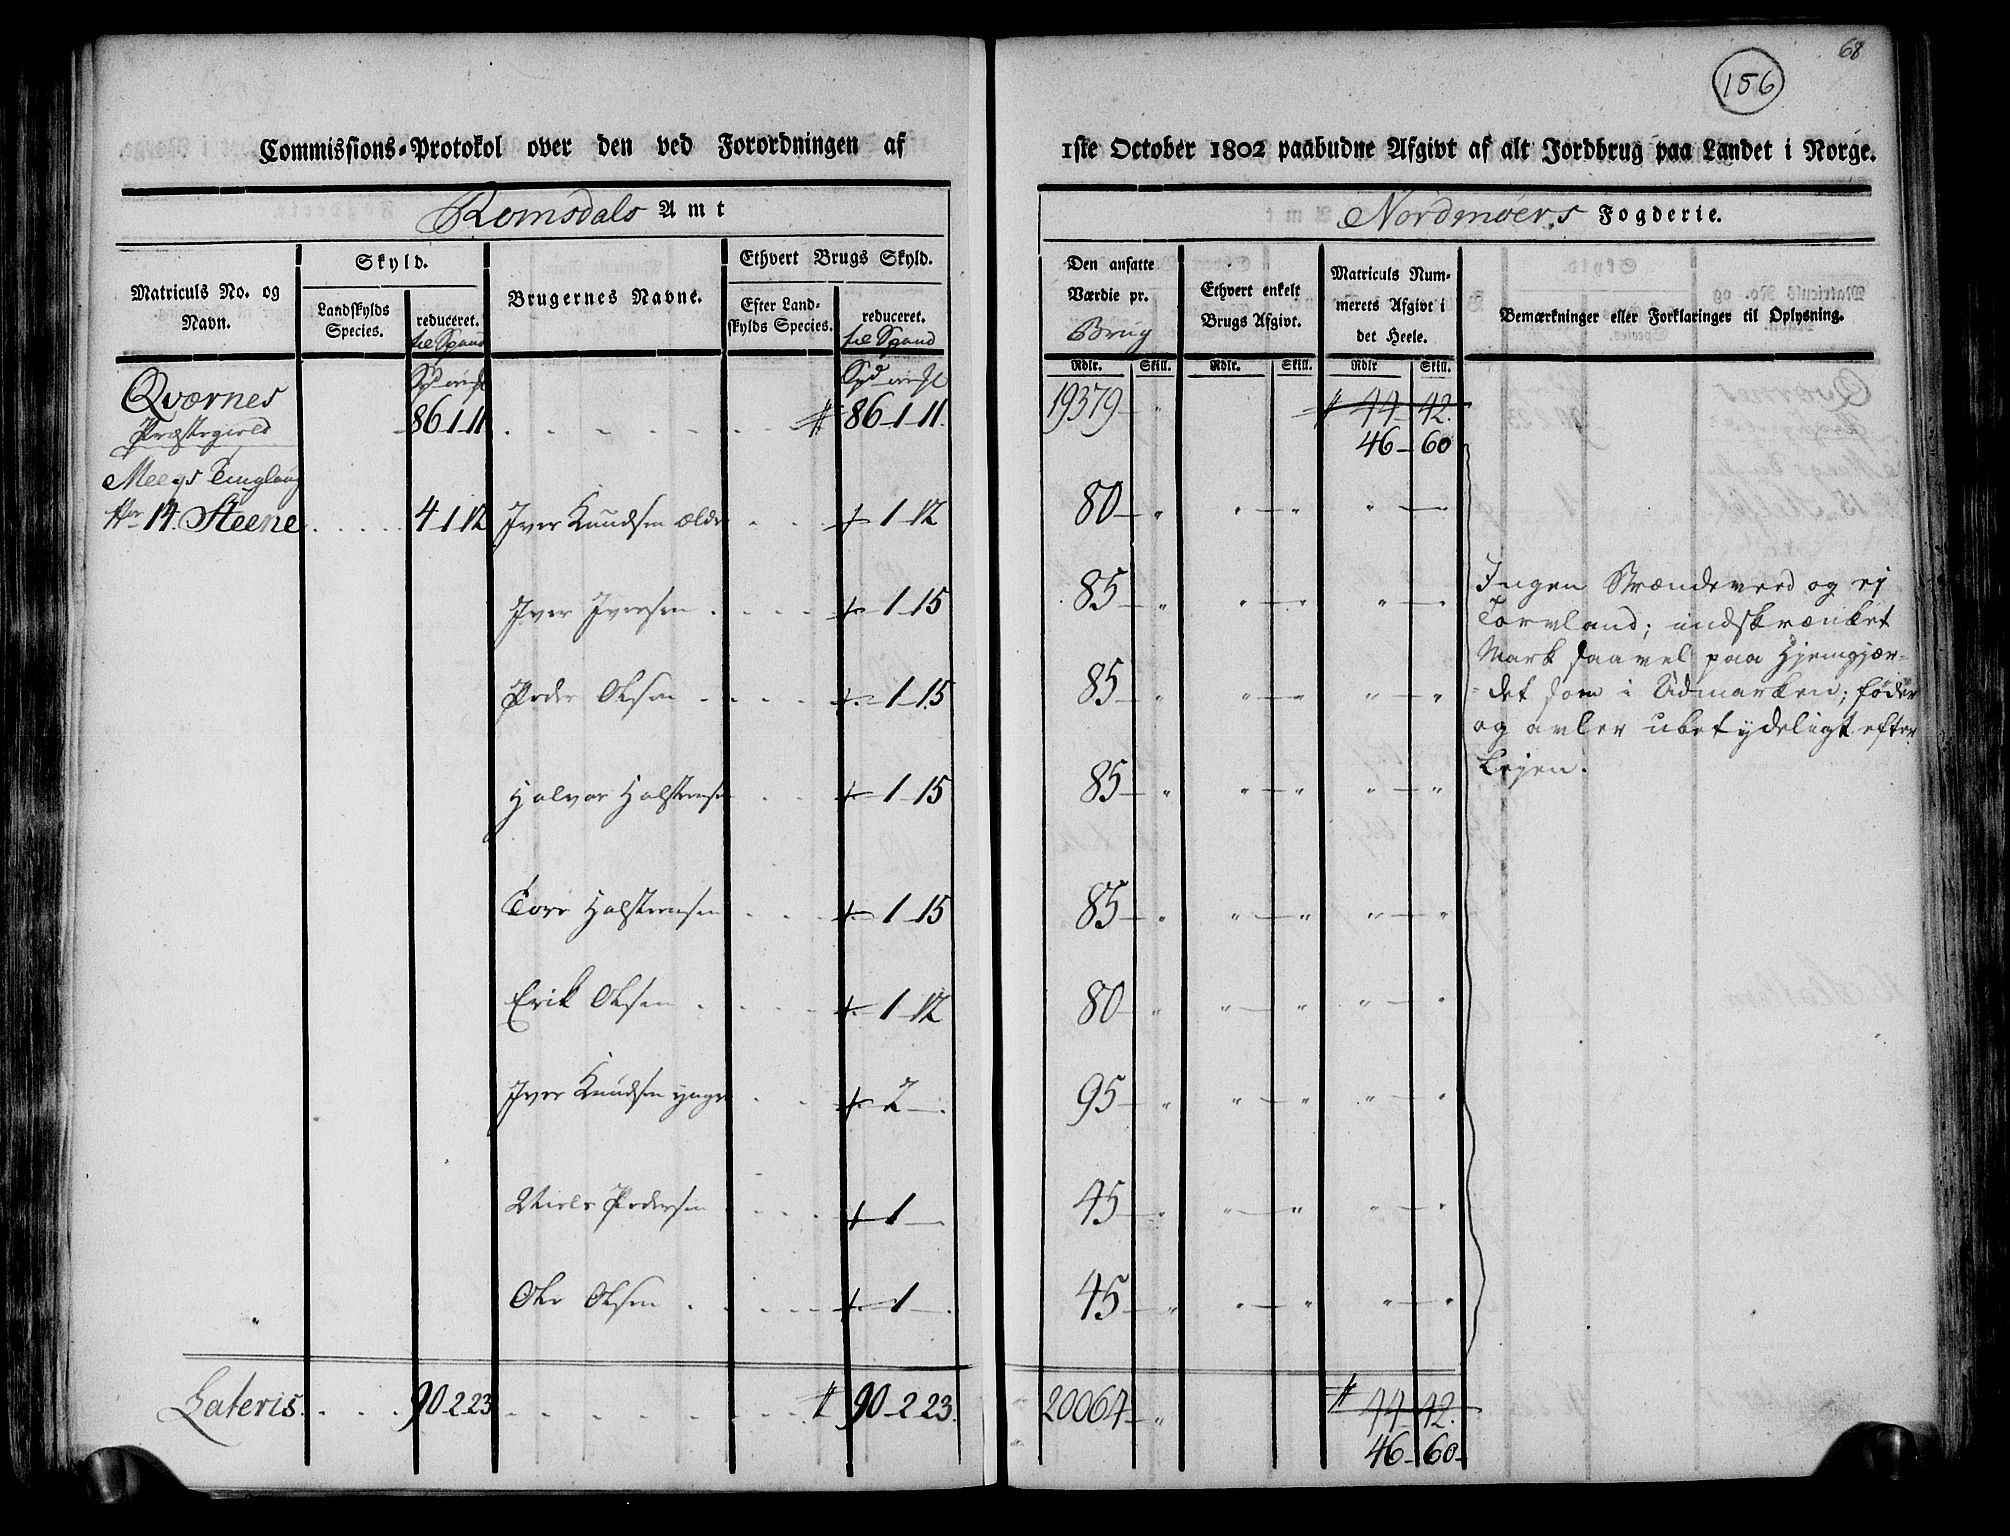 68
156
Commissions-Protokol over den ved Forordningen af 1ste October 1802 paabudne Afgivt af alt Jordbrug paa Landet i Norge.
Romsdals Amt
Nordmøers Fogderie.
Matriculs No. og Navn.
Skyld.
Landskylds Species.
reduceret.
til Spand
Brugernes Navne.
Ethvert Brugs Skyld.
Efter Landskylds Species.
reduceret.
til Spand
Den ansatte Værdie pr.
Brug
Ethvert enkelt Brugs Afgivt.
Matriculs Nummerets Afgivt i det Heele.
Bemærkninger eller Forklaringer til Oplysning.
Rdlr. Skill. Rdlr. Skill. Rdlr Skill.
Qværnes 86-1-11 . . . . # 86-1-11. 19379 - " # 44-42.
Præstegield 46-60
Meegs Tinglaug
No 14. Steene . . . . 4-1-12 Iver Knudsen ælder . . . + 1-12 80 - " " - " " - "
Iver Iversen . . . . + 1-15 85 - " " - " " - "
Peder Olsen . . . . + 1-15 85 - " " - " " - "
Halvor Halstensen . . + 1-15 85 - " " - " " - "
Tore Halstensen . . . + 1-15 85 - " " - " " - "
Erik Olsen . . . . + 1-12 80 - " " - " " - "
Iver Knudsen yngre . . + 2 - . 95 - " " - " " - "
Niels Pedersen . . . + 1 - 45 - " " - " " - "
Ole Olsen . . . . + 1 - . 45 - " " - " " - "
Ingen Brændeved og ej
Torvland; indskrænket
Mark saavel paa Hjemgjær-
det som i Udmarken; føder
og avler ubetydeligt efter
Lejen.
Lateris. . . . 90-2-23 . . . . # 90-2-23. 20064 - " # 44-42.
46-60-